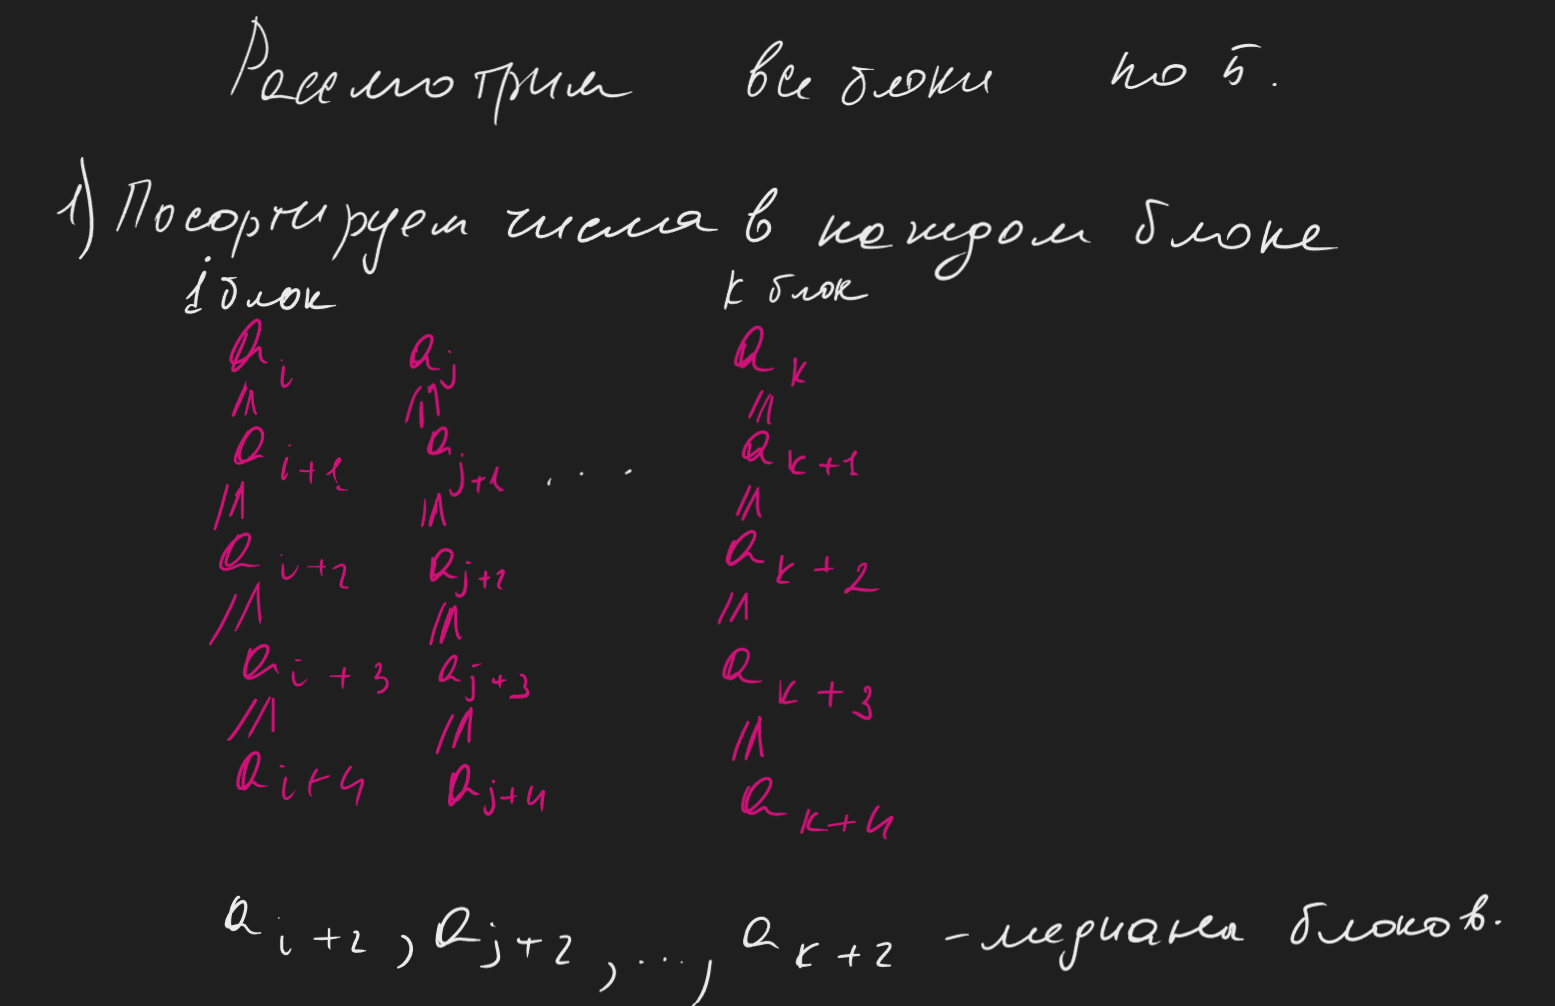 Рассмотрим все блоки по 5.
1) Посортируем числа в каждом блоке
1 блок k блок
a_i a_j a_k
/\ /\ /\
a_{i+1} a_{j+1} ... a_{k+1}
/\ /\ /\
a_{i+2} a_{j+2} a_{k+2}
/\ /\ /\
a_{i+3} a_{j+3} a_{k+3}
/\ /\ /\
a_{i+4} a_{j+4} a_{k+4}
a_{i+2}, a_{j+2}, ..., a_{k+2} - медианы блоков.